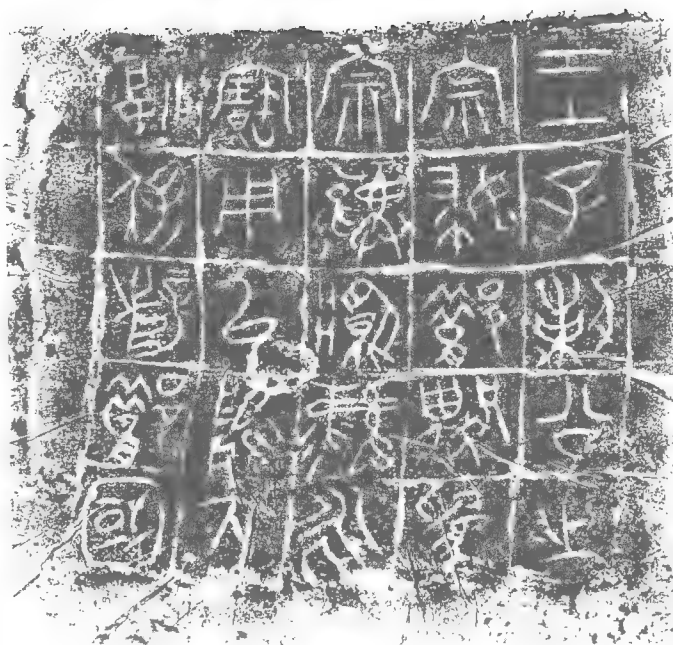 王子剌公之
宗婦為
宗彝彝永
寶用以降大
福保辥國